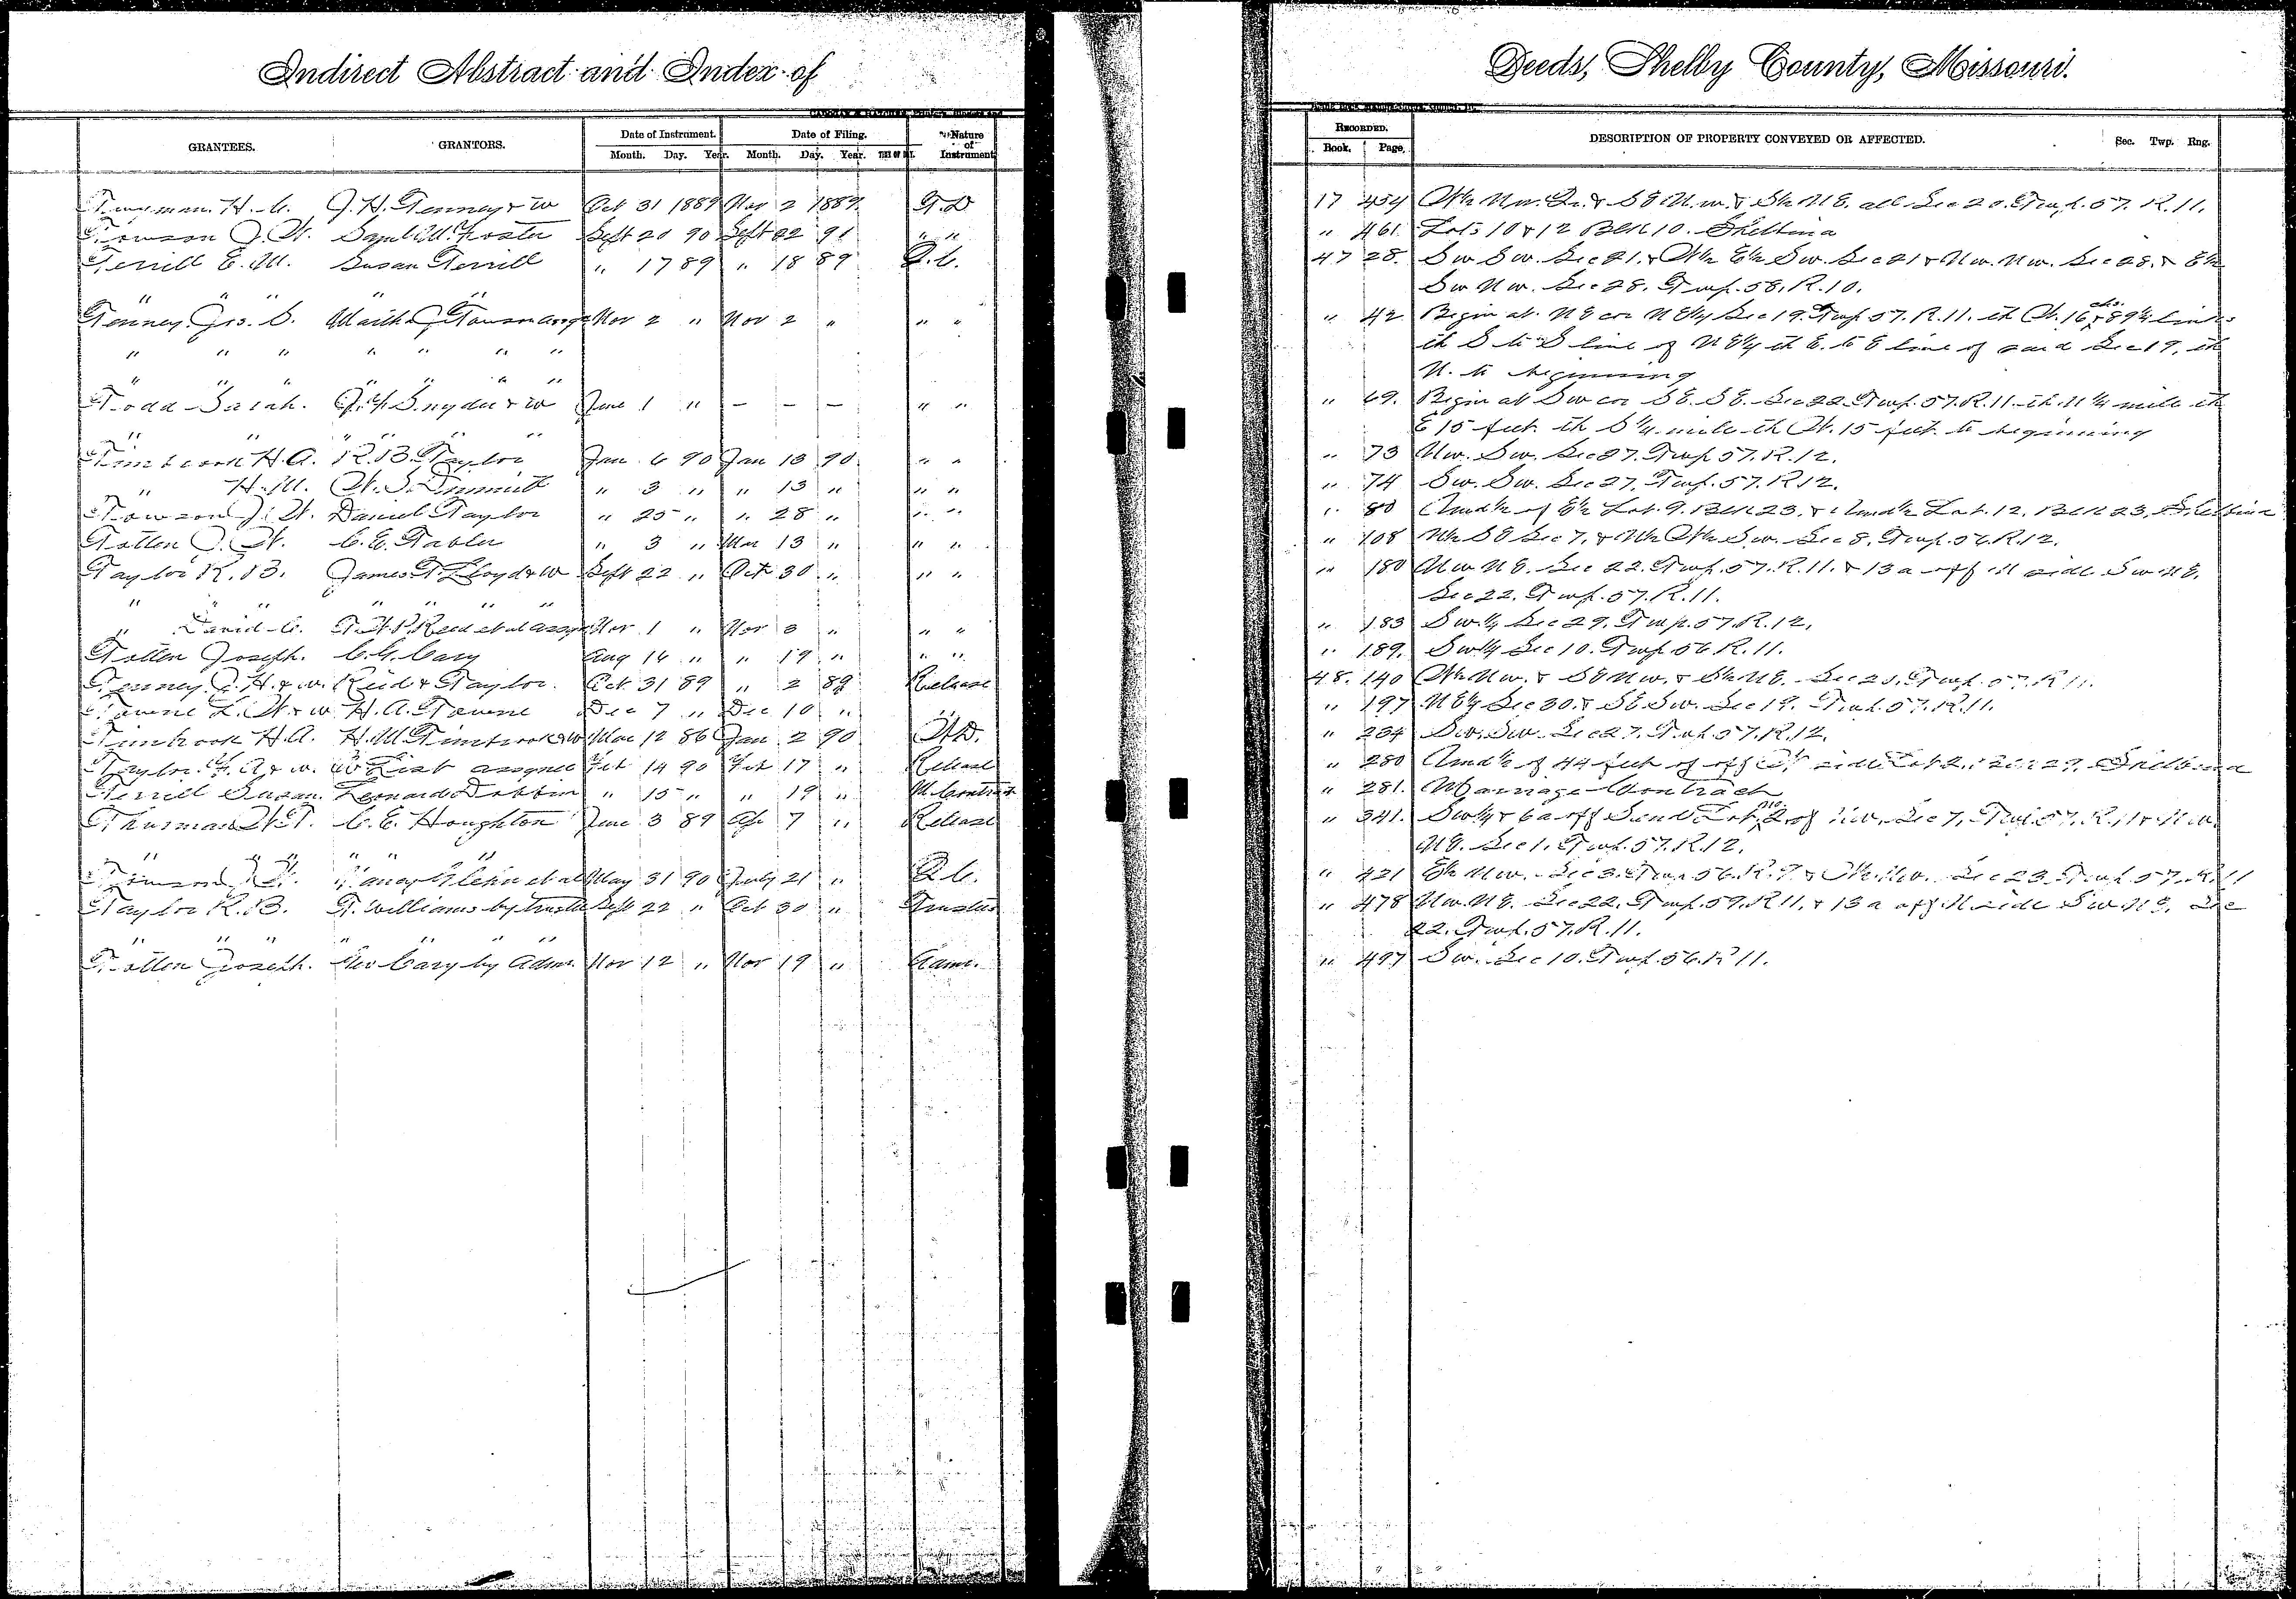 Indirect Abstract and Index of
Deeds, Shelby County, Missouri.
GRANTEES. GRANTORS. Date of Instrument. Date of Filing. Nature of Instrument
Month. Day. Year. Month. Day. Year.
RECORDED. Book. Page. DESCRIPTION OF PROPERTY CONVEYED OR AFFECTED. Sec. Twp. Rng.
H. C. J. H. Tenney & w Oct 31 1889 Nov 2 1889 17 454 S E N. w. & S½ N E. all Sec 20. Twp. 57. R. 11.
Towson J. W. Saml M. Foster Sept 20 90 Sept 22 91 " " " 461. Lots 10 & 12 Blk 10. Shelbina
Terrill E. M. Susan Terrill " 17 89 " 18 89 Q. C. 47 28. Sw Sw. Sec 21. & W½ E½ Sw. Sec 21 & Nw. Nw. Sec 28. & E½
" " " " " Sw Nw. Sec 28. Twp. 58. R. 10.
Tenney Geo. S. Martha Nov 2 " Nov 2 " " " " 42 Begin at N E cor N E¼ Sec 19. Twp 57. R. 11. th W. 16 chs. & links
" " " " " " " th S to S line of N E¼ th E. to E line of said Sec 19, th
" " " " " N. to beginning
Todd Sarah. Snyder & w June 1 " – – – " " " 69. Begin at Sw cor S E. S E. Sec 22. Twp. 57. R. 11. th. N ¼ mile th
" " " " " " E 15 feet th S ¼ mile th W. 15 feet to beginning
Timbrook H. A. R. B. Taylor Jan 6 90 Jan 13 90 " " " 73 Nw. Sw. Sec 27. Twp 57. R. 12.
" H. M. W. S. " 3 " " 13 " " " " 74 Sw. Sw. Sec 27. Twp. 57. R 12.
Towson J. W. Daniel Taylor " 25 " " 28 " " " " 80 of E½ Lot. 9. Blk 23. & Lot. 12. Blk 23, Shelbina
Totten J. W. C. E. Tabler " 3 " Mar 13 " " " " 108 N½ S E Sec 7. & N½ W½ Sw. Sec 8. Twp. 56. R. 12.
Taylor R. B. James T. Lloyd & w Sept 22 " Oct 30 " " " " 180 Nw N E. Sec 22. Twp. 57. R. 11. & 13 a off N side Sw N E.
" " " " " " " Sec 22. Twp. 57. R. 11.
" David C. Reed et al Nov 1 " Nov 3 " " " " 183 Sw ¼ Sec 29. Twp. 57. R. 12.
Totten Joseph. C. G. Cary Aug 14 " " 19 " " " " 189. Sw ¼ Sec 10. Twp 56. R. 11.
Tenney J. H. & w. Reid & Taylor. Oct. 31 89 " 2 89 Release 48. 140 W½ Nw. & S E Nw. & S½ N E. Sec 20. Twp. 57. R 11.
Towne L. W. & w. H. A. Towne Dec 7 " Dec 10 " " " 197 N E¼ Sec 30. & S E Sw. Sec 19. Twp. 57. R. 11.
Timbrook H. A. H. M Timbrook & w Mar 12 86 Jan 2 90 W. D. " 204 Sw. Sw. Sec 27. Twp. 57. R. 12.
Taylor & w. assignee Feb 14 90 Feb 17 " Release " 280 of 44 feet of off side Lot 2. Shelbina
Terrill Susan Leonard Dobbin " 15 " " 19 " M. Contract " 281. Marriage Contract
Thurman C. E. Houghton June 3 89 Ap 7 " Release " 341. Sw ¼ & 6 a off S end Lot 2 of Nw. Sec 7. Twp. 57. R. 11 & Nw.
" " " " " " N E. Sec 1. Twp. 57. R. 12.
et al May 31 90 July 21 " Q. C. " 421 E½ Nw. Sec 3. Twp 56. R. 9. & Sec 23 Twp 57. R. 11
Taylor R. B. T. Williams by trustee Sept 22 " Oct 30 " Trustee " 478 Nw. N E. Sec 22. Twp. 57. R 11. & 13 a off N side Sw N E. Sec
" " " " " " " 22. Twp. 57. R. 11.
Totten Joseph. Geo Cary by Admr. Nov 12 " Nov 19 " Admr. " 497 Sw. Sec 10. Twp. 56. R 11.